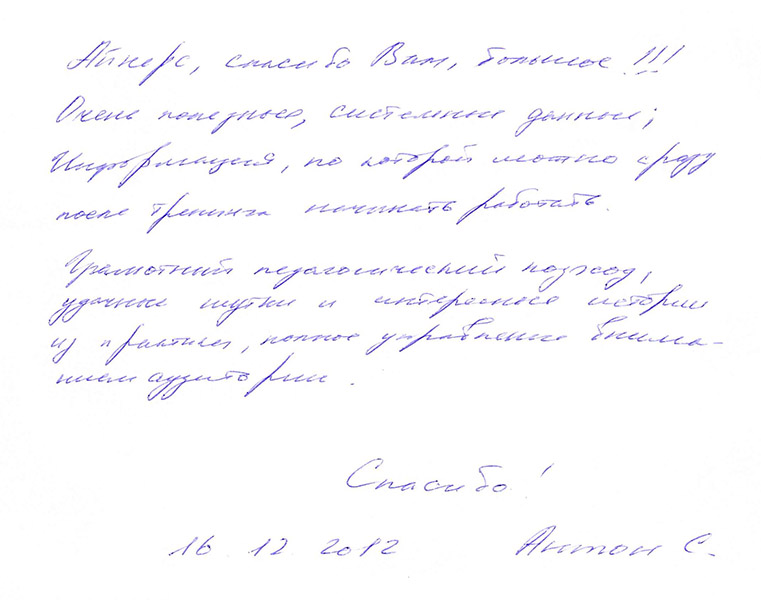 Айнарс, спасибо Вам, большое !!!
Очень полезные, системные данные;
Информация, по которой можно сразу
после тренинга начинать работать.
Грамотный педагогический подход,
удачные шутки и интересные истории
из практики, полное управление внима-
нием аудитории.
Спасибо!
16 12 2012 Антон С.